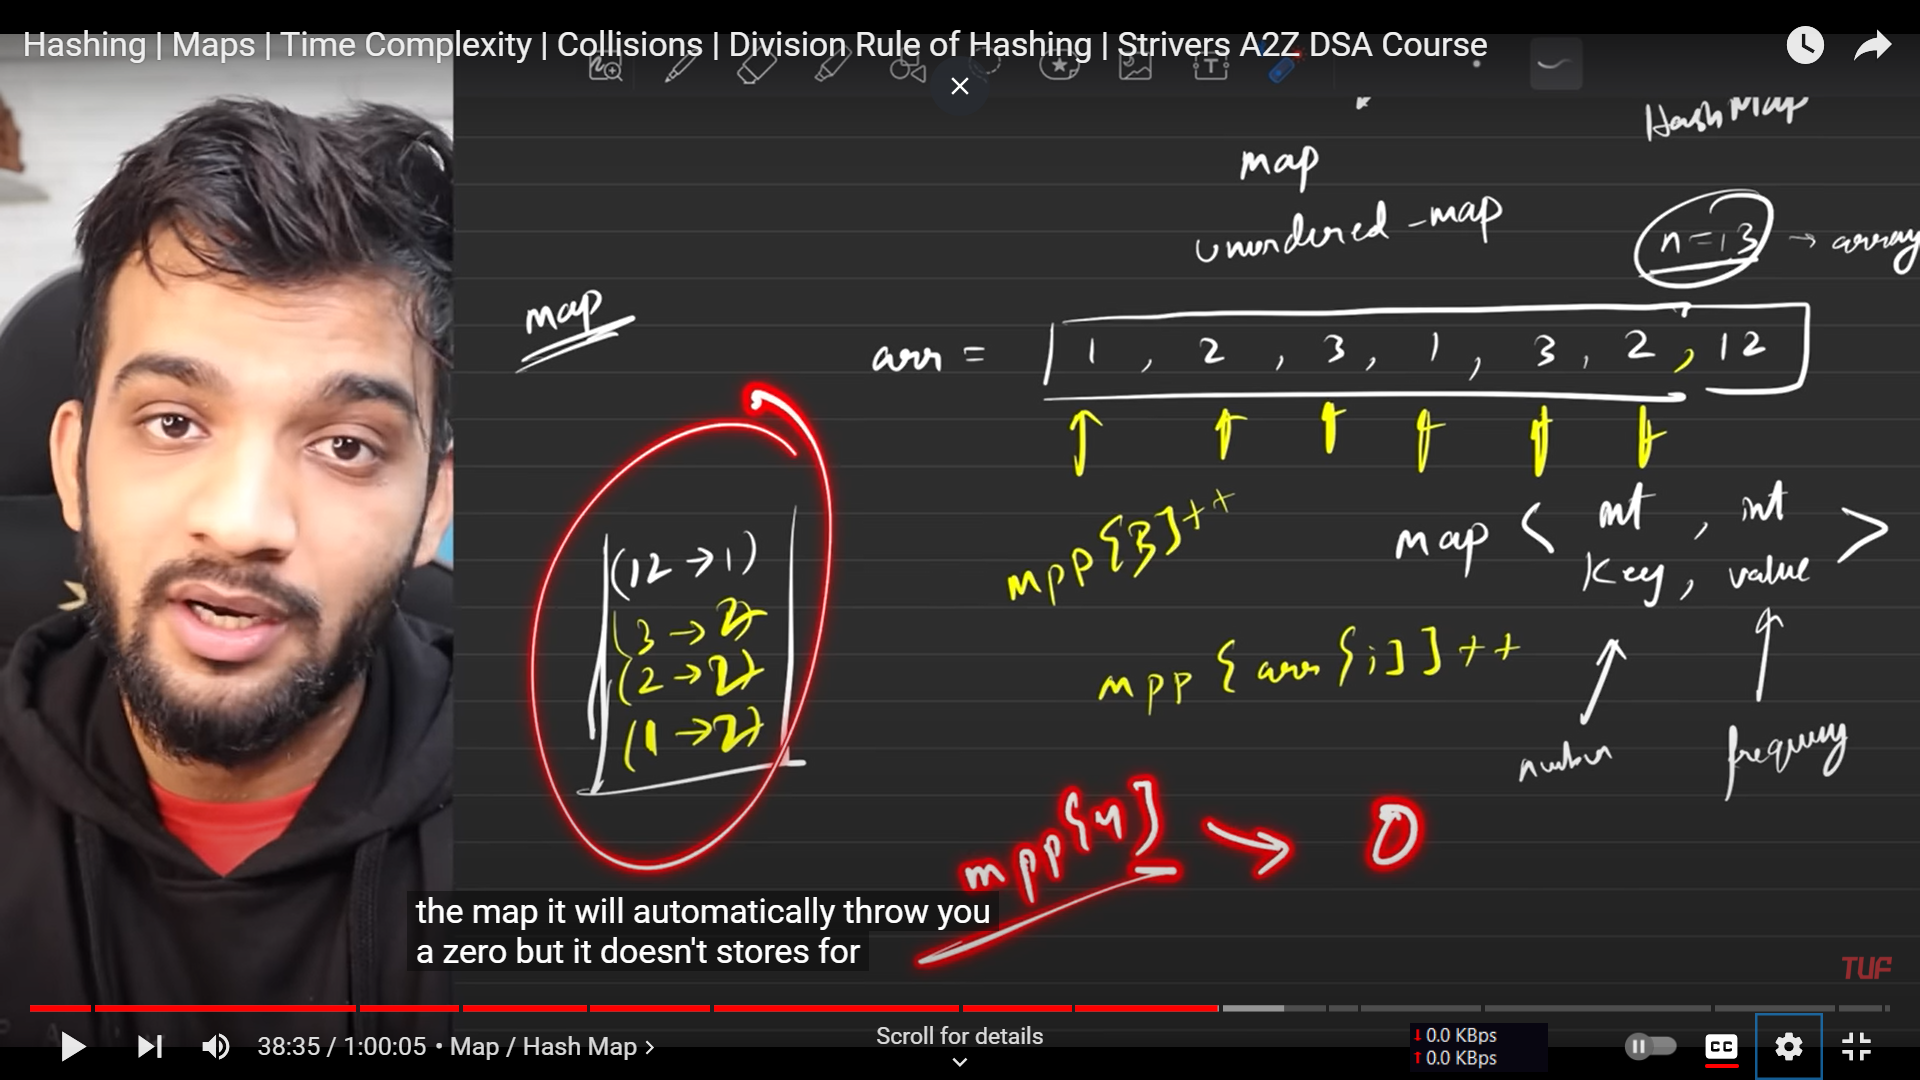 Hashing | Maps | Time Complexity | Collisions | Division Rule of Hashing | Strivers A2Z DSA Course
HashMap
map
unordered_map
n=13 → array
map
arr = 1, 2, 3, 1, 3, 2, 12
mpp[3]++
map < int, int >
key, value
(12→1)
(3→2)
(2→2)
(1→2)
mpp[arr[i]]++
number
frequency
mpp[4] → 0
the map it will automatically throw you
a zero but it doesn't stores for
TUF
38:35 / 1:00:05 • Map / Hash Map >
Scroll for details
0.0 KBps
0.0 KBps
CC